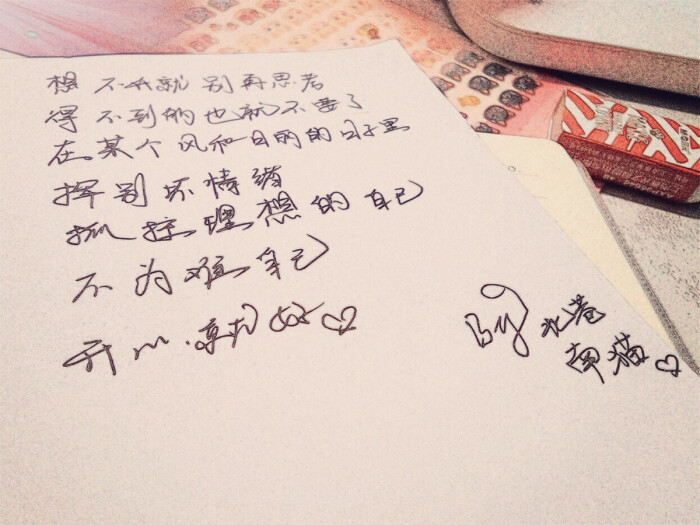 想不开就别再思考
得不到的也就不要了
在某个风和日丽的日子里
挥别坏情绪
抓拄理想的自己
不为难自己
开心.就好
By 北巷
南猫